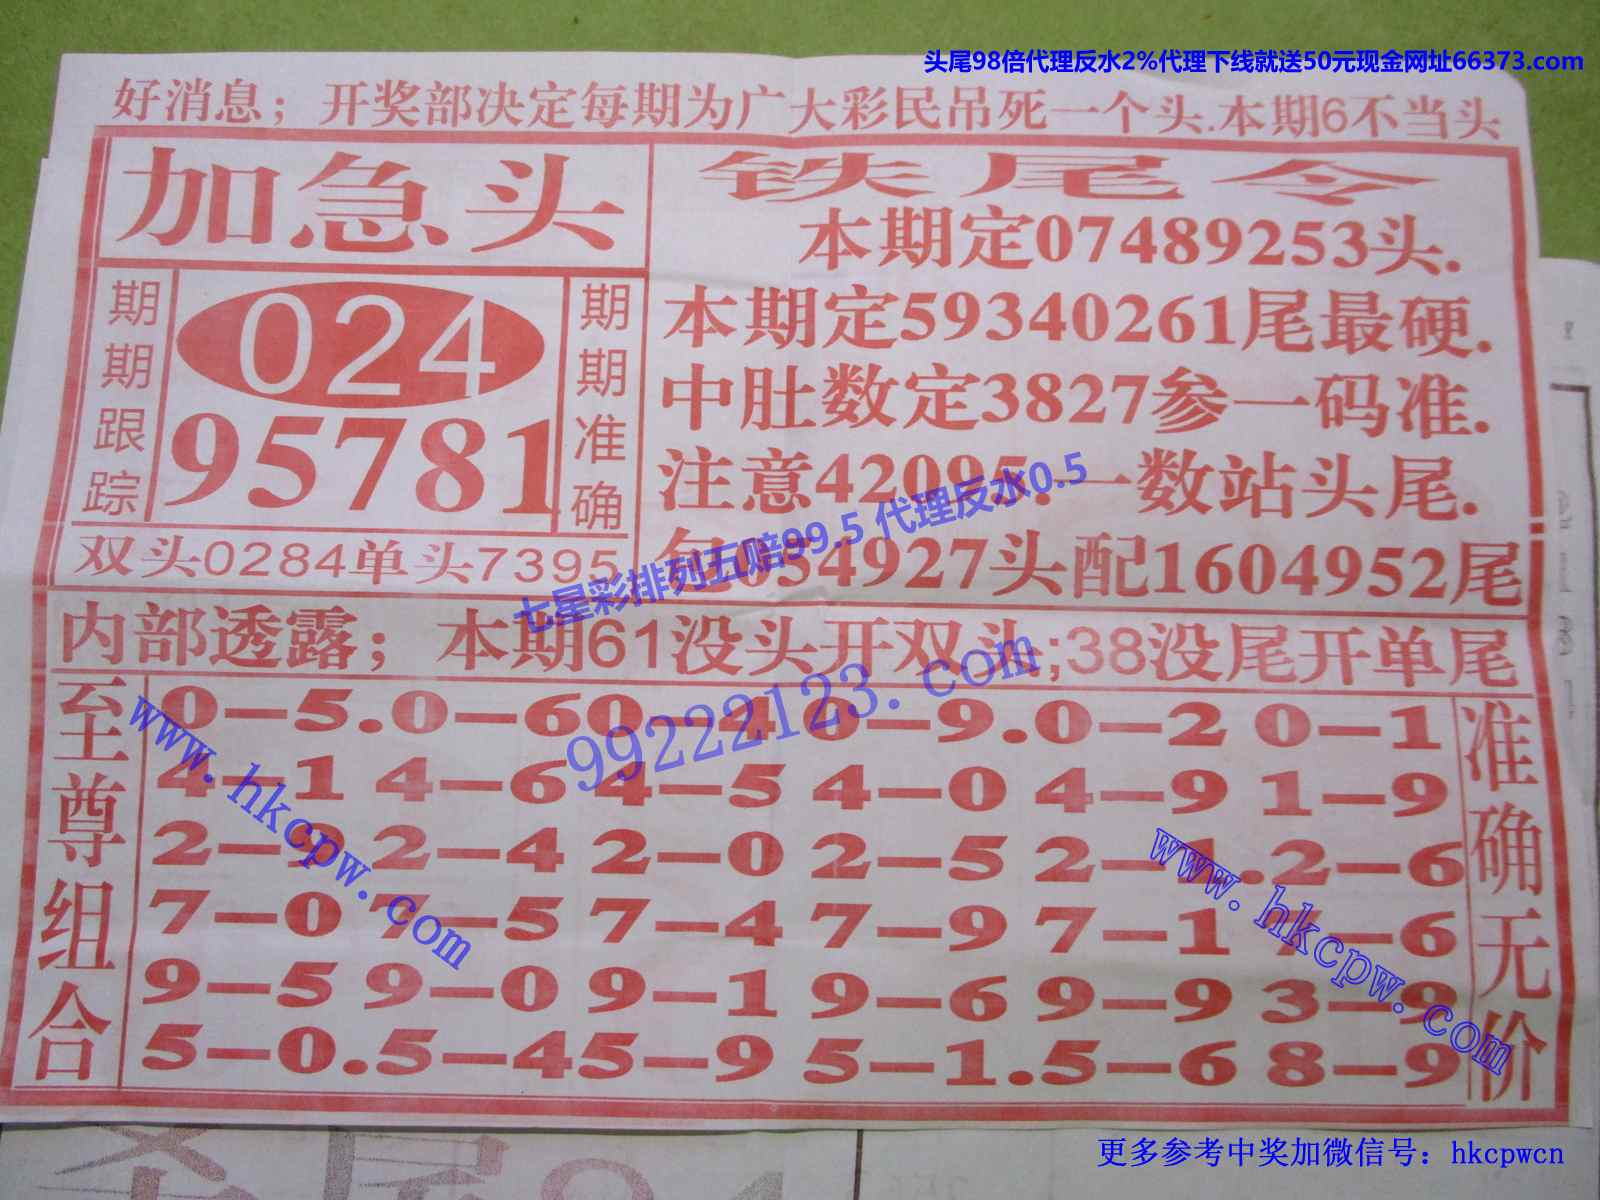 头尾98倍代理反水2%代理下线就送50元现金网址66373.com
好消息；开奖部决定每期为广大彩民吊死一个头.本期6不当头
加急头
期期跟踪
024
95781
期期准确
双头0284单头7395
铁尾令
本期定07489253头.
本期定59340261尾最硬.
中肚数定3827参一码准.
注意42095.一数站头尾.
包054927头配1604952尾
七星彩排列五赔99.5 代理反水0.5
内部透露；本期61没头开双头;38没尾开单尾
99222123.com
至尊组合
0—5.0—60—4 0—9.0—2 0—1
4—1 4—6 4—5 4—0 4—9 1—9
2—9 2—4 2—0 2—5 2—1.2—6
7—0 7—5 7—4 7—9 7—1 7—6
9—5 9—0 9—1 9—6 9—9 3—9
5—0.5—45—9 5—1.5—6 8—9
准确无价
www.hkcpw.com
www.hkcpw.com
更多参考中奖加微信号：hkcpwcn